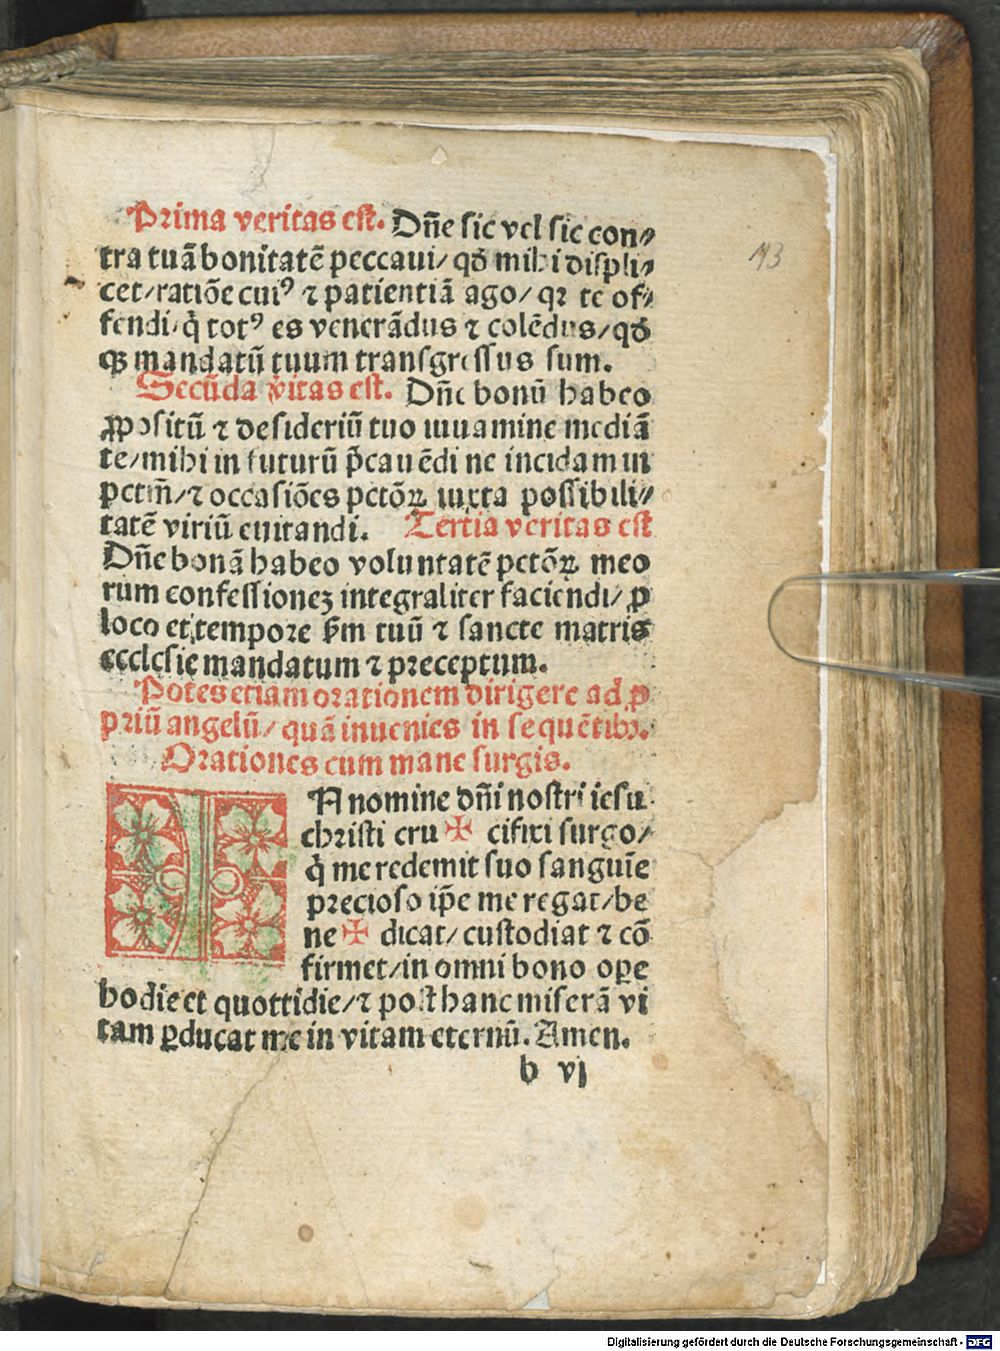 Prima veritas est. Dñe sic vel sic con⸗
tra tuā bonitatē peccaui/ qđ mihi displi⸗
cet/ ratiōe cuiꝰ ⁊ patientiā ago/ qꝛ te of⸗
fendi, q̇ totꝰ es venerādus ⁊ colēdus/ qđ
ꝗꝫ mandatū tuum transgressus sum.
Secūda v̓itas est. Dñe bonū habeo
ꝓpositū ⁊ desideriū tuo iuuamine mediā
te/ mihi in futurū p̄cauēdi ne incidam in
pctm̄/ ⁊ occasiōes pctōꝝ iuxta possibili⸗
tatē viriū euitandi. Tertia veritas est
Dñe bonā habeo voluntatē pctōꝝ meo
rum confessioneꝫ integraliter faciendi/ ꝓ
loco et tempore ẜm tuū ⁊ sancte matris
ecclesie mandatum ⁊ preceptum.
Potes etiam orationem dirigere ad ꝓ
priū angelū/ quā inuenies in sequētibꝰ.
Orationes cum mane surgis.
N nomine dñi nostri iesu
christi cru ✠ cifixi surgo/
q̇ me redemit suo sanguīe
precioso ip̄e me regat/ be
ne ✠ dicat/ custodiat ⁊ cō
firmet/ in omni bono oꝑe
hodie et quottidie/ ⁊ post hanc miserā vi
tam ꝑducat me in vitam eternū. Amen.
b vj
193
Digitalisierung gefördert durch die Deutsche Forschungsgemeinschaft - DFG